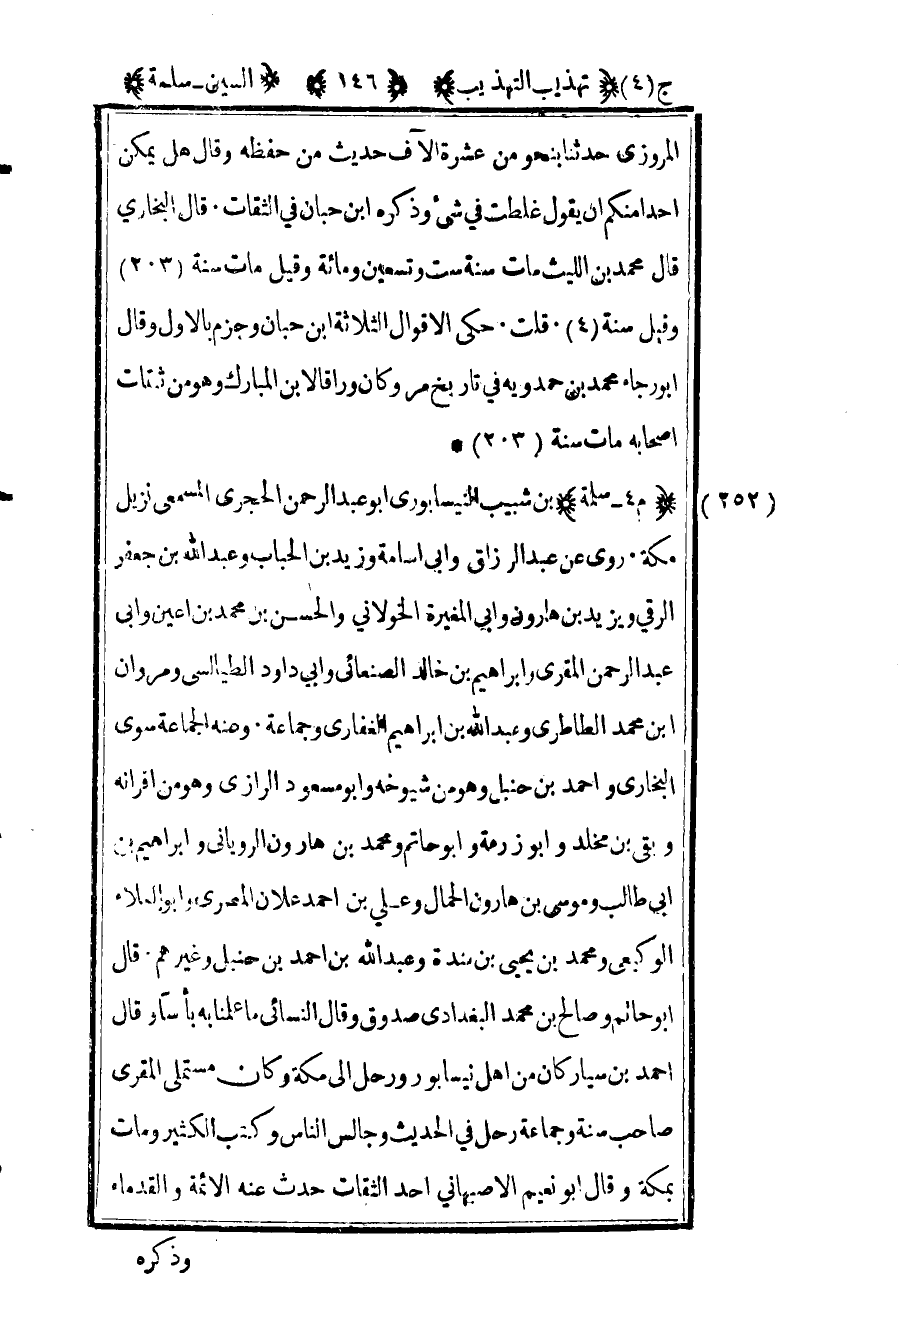 ج (٤) ﴿ تهذيب التهذيب ﴾ ﴿ ١٤٦ ﴾ ﴿ السين ـ سلمة ﴾
المروزى حدثنا بنحو من عشرة الآف حديث من حفظه وقال هل يمكن
احدا منكم ان يقول غلطت في شئ وذكره ابن حبان في الثقات · قال البخاري
قال محمد بن الليث مات سنة ست وتسعين ومائة وقيل مات سنة (٢٠٣)
وقيل سنة (٤) · قلت · حكى الاقوال الثلاثة ابن حبان وجزم بالاول وقال
ابو رجاء محمد بن حمدويه في تاريخ مرو كان وراقا لابن المبارك وهو من ثقات
اصحابه مات سنة (٢٠٣) *
(٢٥٢) ﴿ م٤ ـ سلمة ﴾ بن شبيب النيسابورى ابو عبدالرحمن الحجرى المسمعى نزيل
مكة · روى عن عبدالرزاق وابي اسامة وزيد بن الحباب وعبدالله بن جعفر
الرقي ويزيد بن هارون وابي المغيرة الخولاني والحسن بن محمد بن اعين وابى
عبدالرحمن المقرى وابراهيم بن خالد الصنعانى وابي داود الطيالسى ومروان
ابن محمد الطاطرى وعبدالله بن ابراهيم الغفارى وجماعة · وعنه الجماعة سوى
البخارى و احمد بن حنبل وهو من شيوخه وابو مسعود الرازى وهو من اقرانه
و بقى بن مخلد و ابو زرعة و ابو حاتم و محمد بن هارون الرويانى و ابراهيم بن
ابي طالب وموسى بن هارون الحمال وعلي بن احمد علان المصرى وابو العلاء
الوكيعى ومحمد بن يحيى بن مندة وعبدالله بن احمد بن حنبل وغيرهم · قال
ابو حاتم وصالح بن محمد البغدادى صدوق وقال النسائى ما علمنا به بأسا و قال
احمد بن سيار كان من اهل نيسابور ورحل الى مكة وكان مستملى المقرى
صاحب سنة وجماعة رحل في الحديث وجالس الناس وكتب الكثير ومات
بمكة و قال ابو نعيم الاصبهاني احد الثقات حدث عنه الائمة و القدماء
وذكره